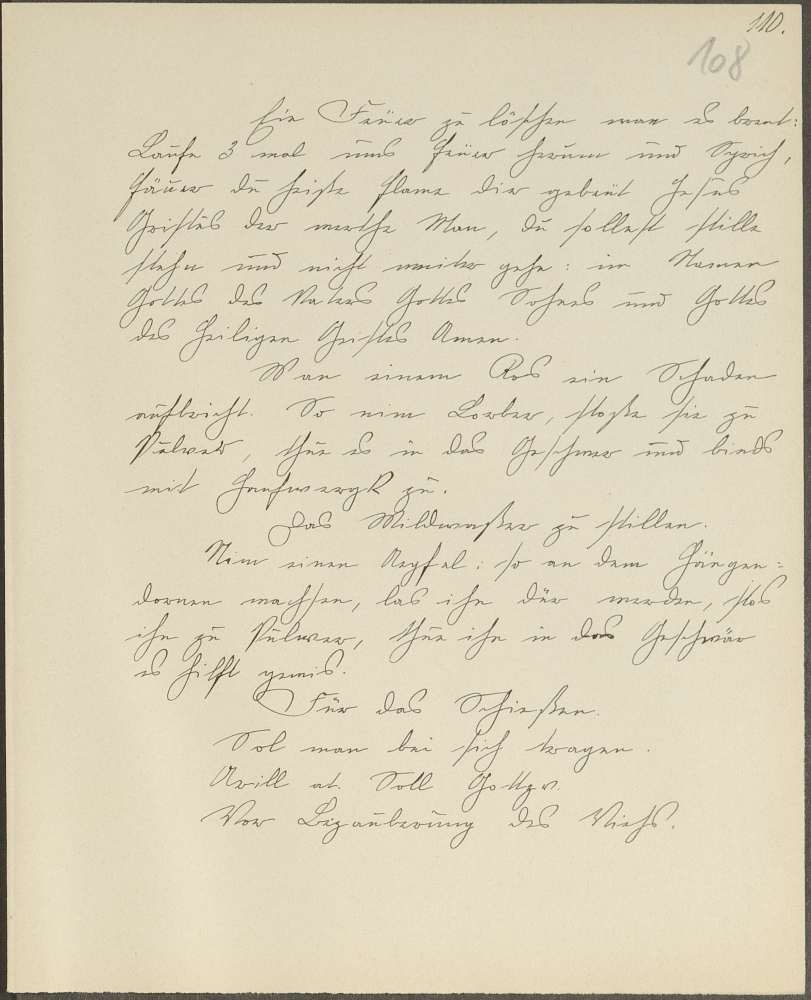 110.
108
Ein Feuer zu löschen wan es brent:
Laufe 3 mal ums feuer herum und Sprich,
fäuer du heiße flame dir gebeut Jesus
Christus der werthe Man, du sollest stille
stehn und nicht weiter gehe: im Namen
Gottes des Vaters Gottes Sohnes und Gottes
des heiligen Geistes Amen.
Wan einem Ros ein Schaden
aufbricht. So nim Lorber, stoße sie zu
Pulver, thue es in das Geschwer und binds
mit Hanfwergk zu.
Das Wildwasser zu stillen.
Nim einen Apfel: so an dem
dornen wachsen, las ihn dür werden, stos
ihn zu Pulver, thue ihn in das Geschwär
es hilfft gewis.
Für das Schießen.
Sol man bei sich tragen.
at. Soll
Vor Bezauberung des Viehs.